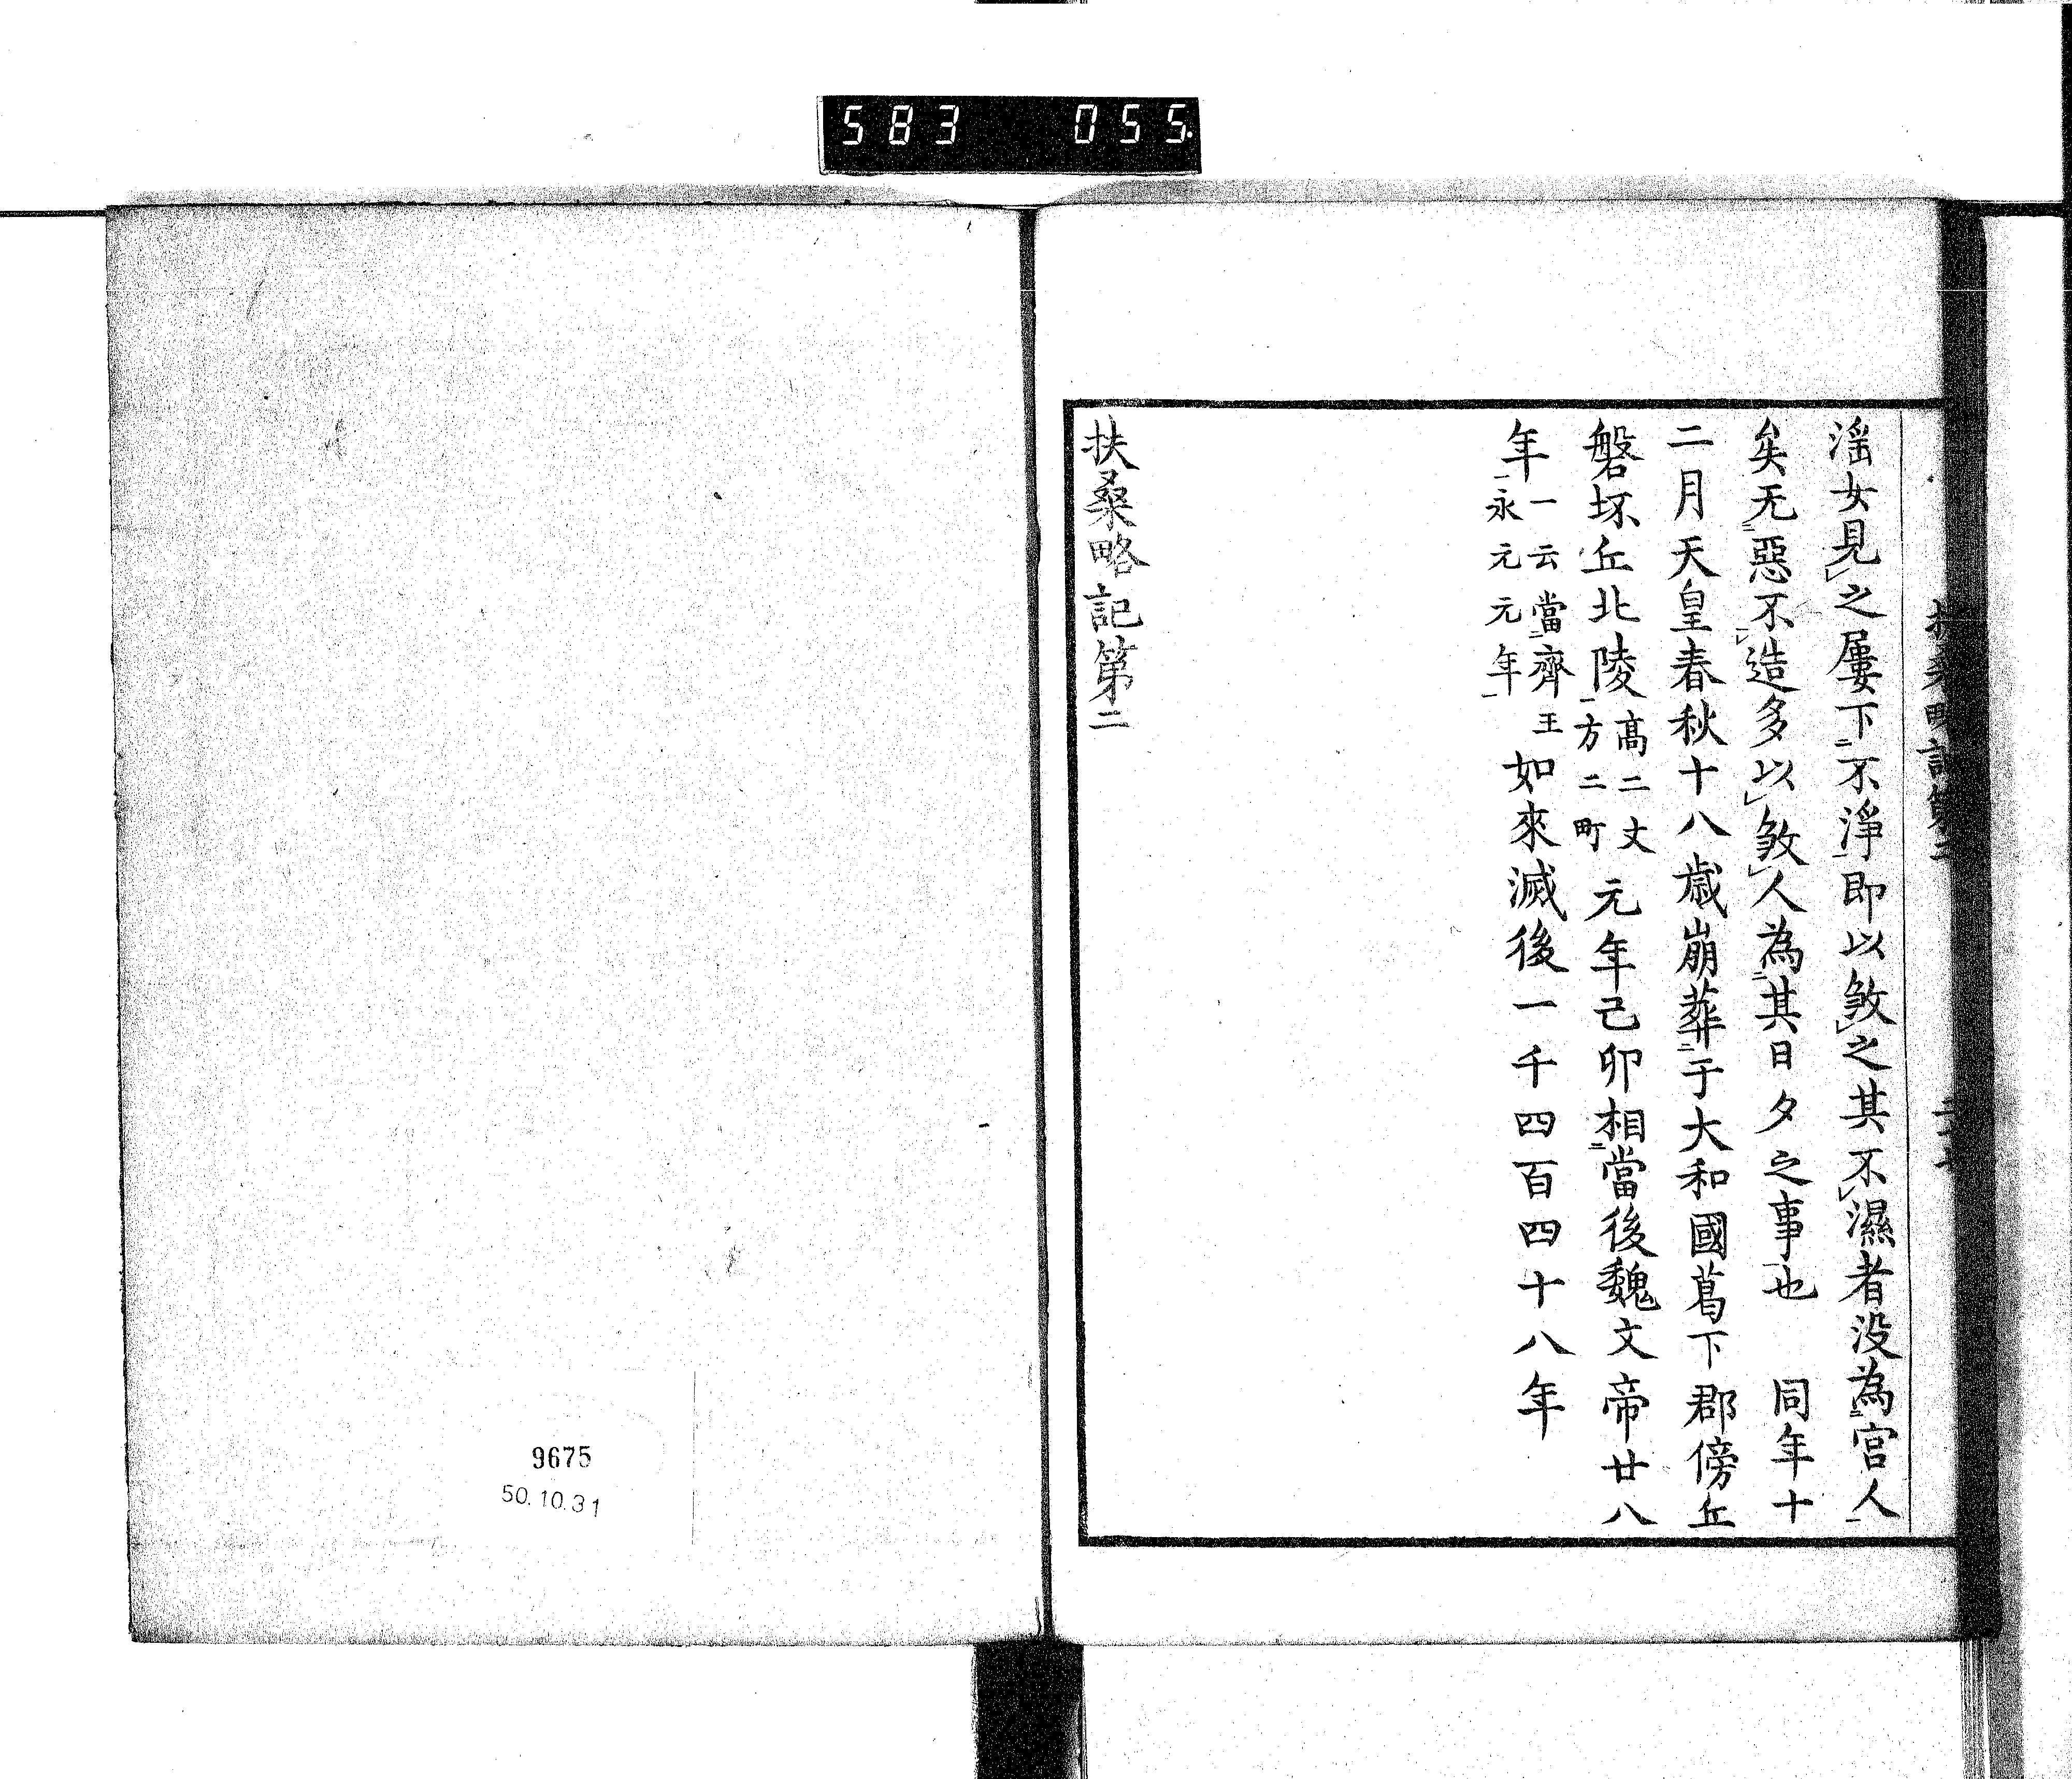 583 055
扶桑略記第二
淫女見之屢下不淨即以煞之其不濕者没為宫人
矣无惡不造多以煞人為其日夕之事也　同年十
二月天皇春秋十八歳崩葬于大和國葛下郡傍丘
磐坏丘北陵高二丈方二町元年己卯相當後魏文帝廿八
年一云當齊王永元元年如來滅後一千四百四十八年
扶桑略記第二
9675
50.10.31